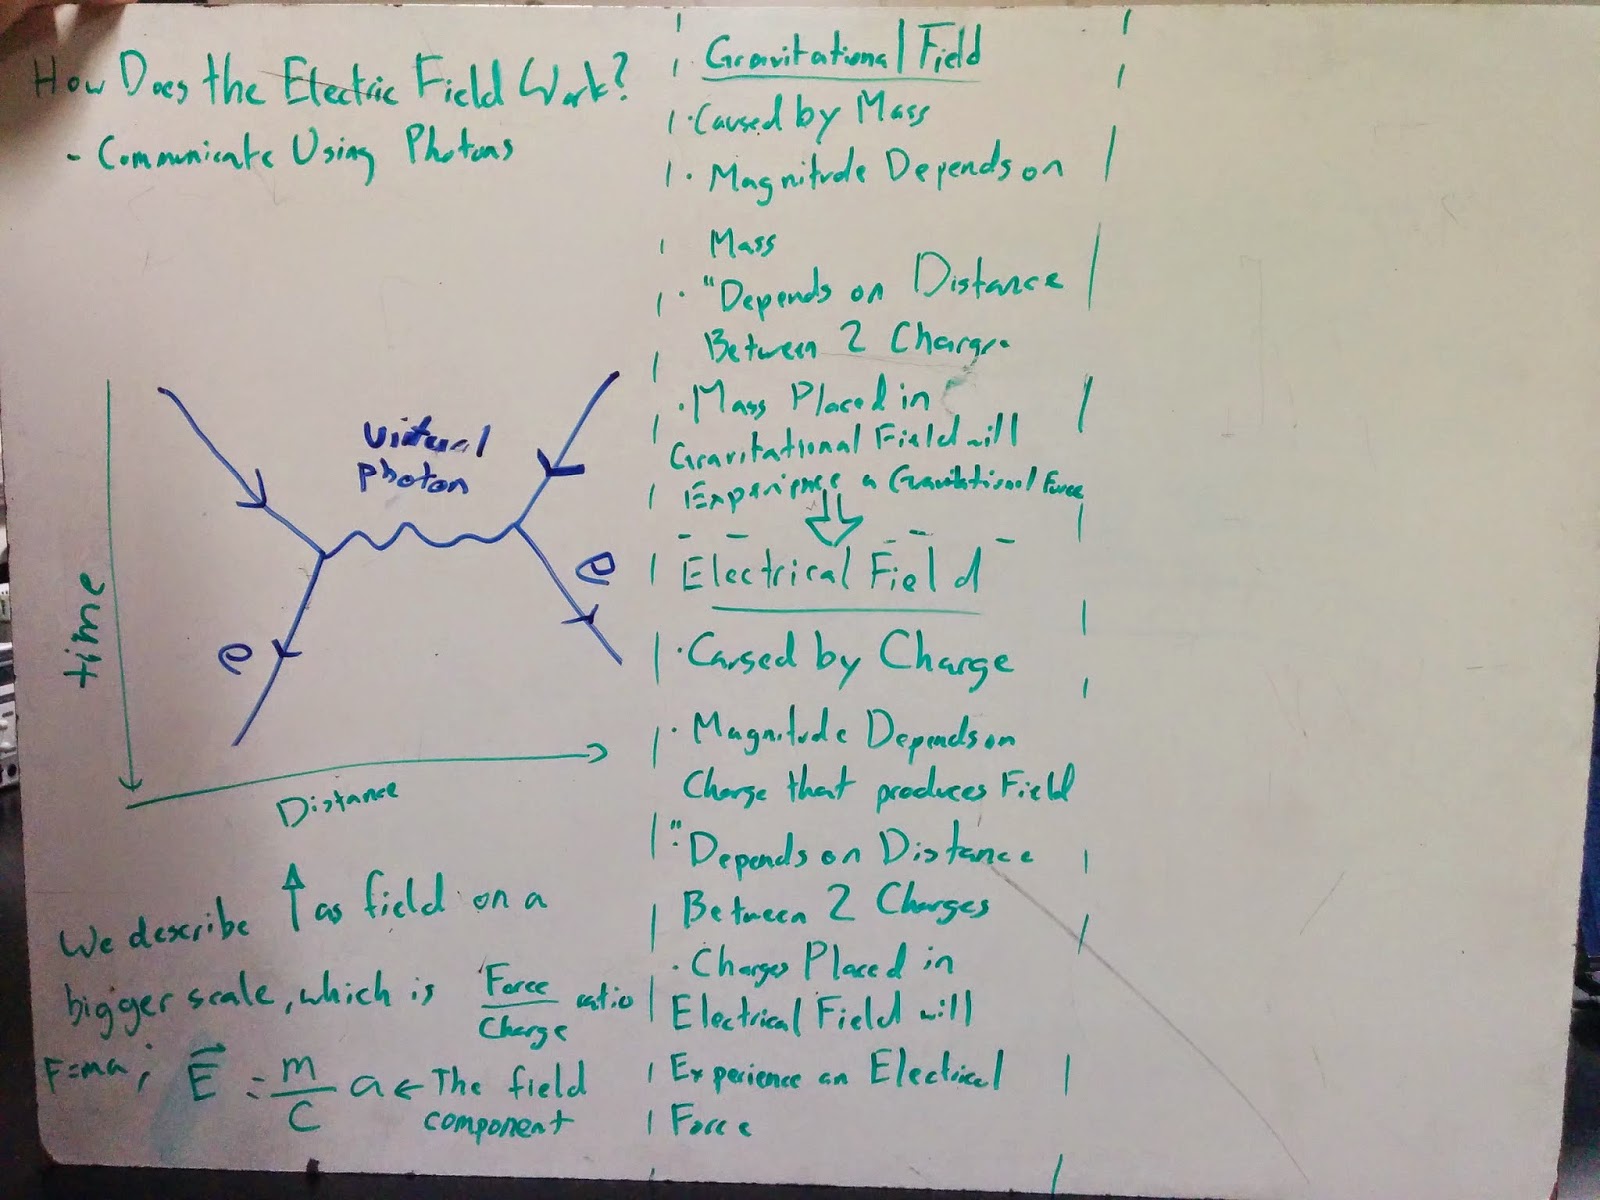 How Does the Electric Field Work?
- Communicate Using Photons
Virtual
photon
e
e
time
Distance
We describe ↑ as field on a
bigger scale, which is Force/Charge ratio
F=ma; E⃗ = m/C a ← The field
component
Gravitational Field
· Caused by Mass
· Magnitude Depends on
Mass
· "Depends on Distance
Between 2 Charge
· Mass Placed in
Gravitational Field will
Experience a Gravitational Force
⇓
Electrical Field
· Caused by Charge
· Magnitude Depends on
Charge that produces Field
· "Depends on Distance
Between 2 Charges
· Charges Placed in
Electrical Field will
Experience an Electrical
Force